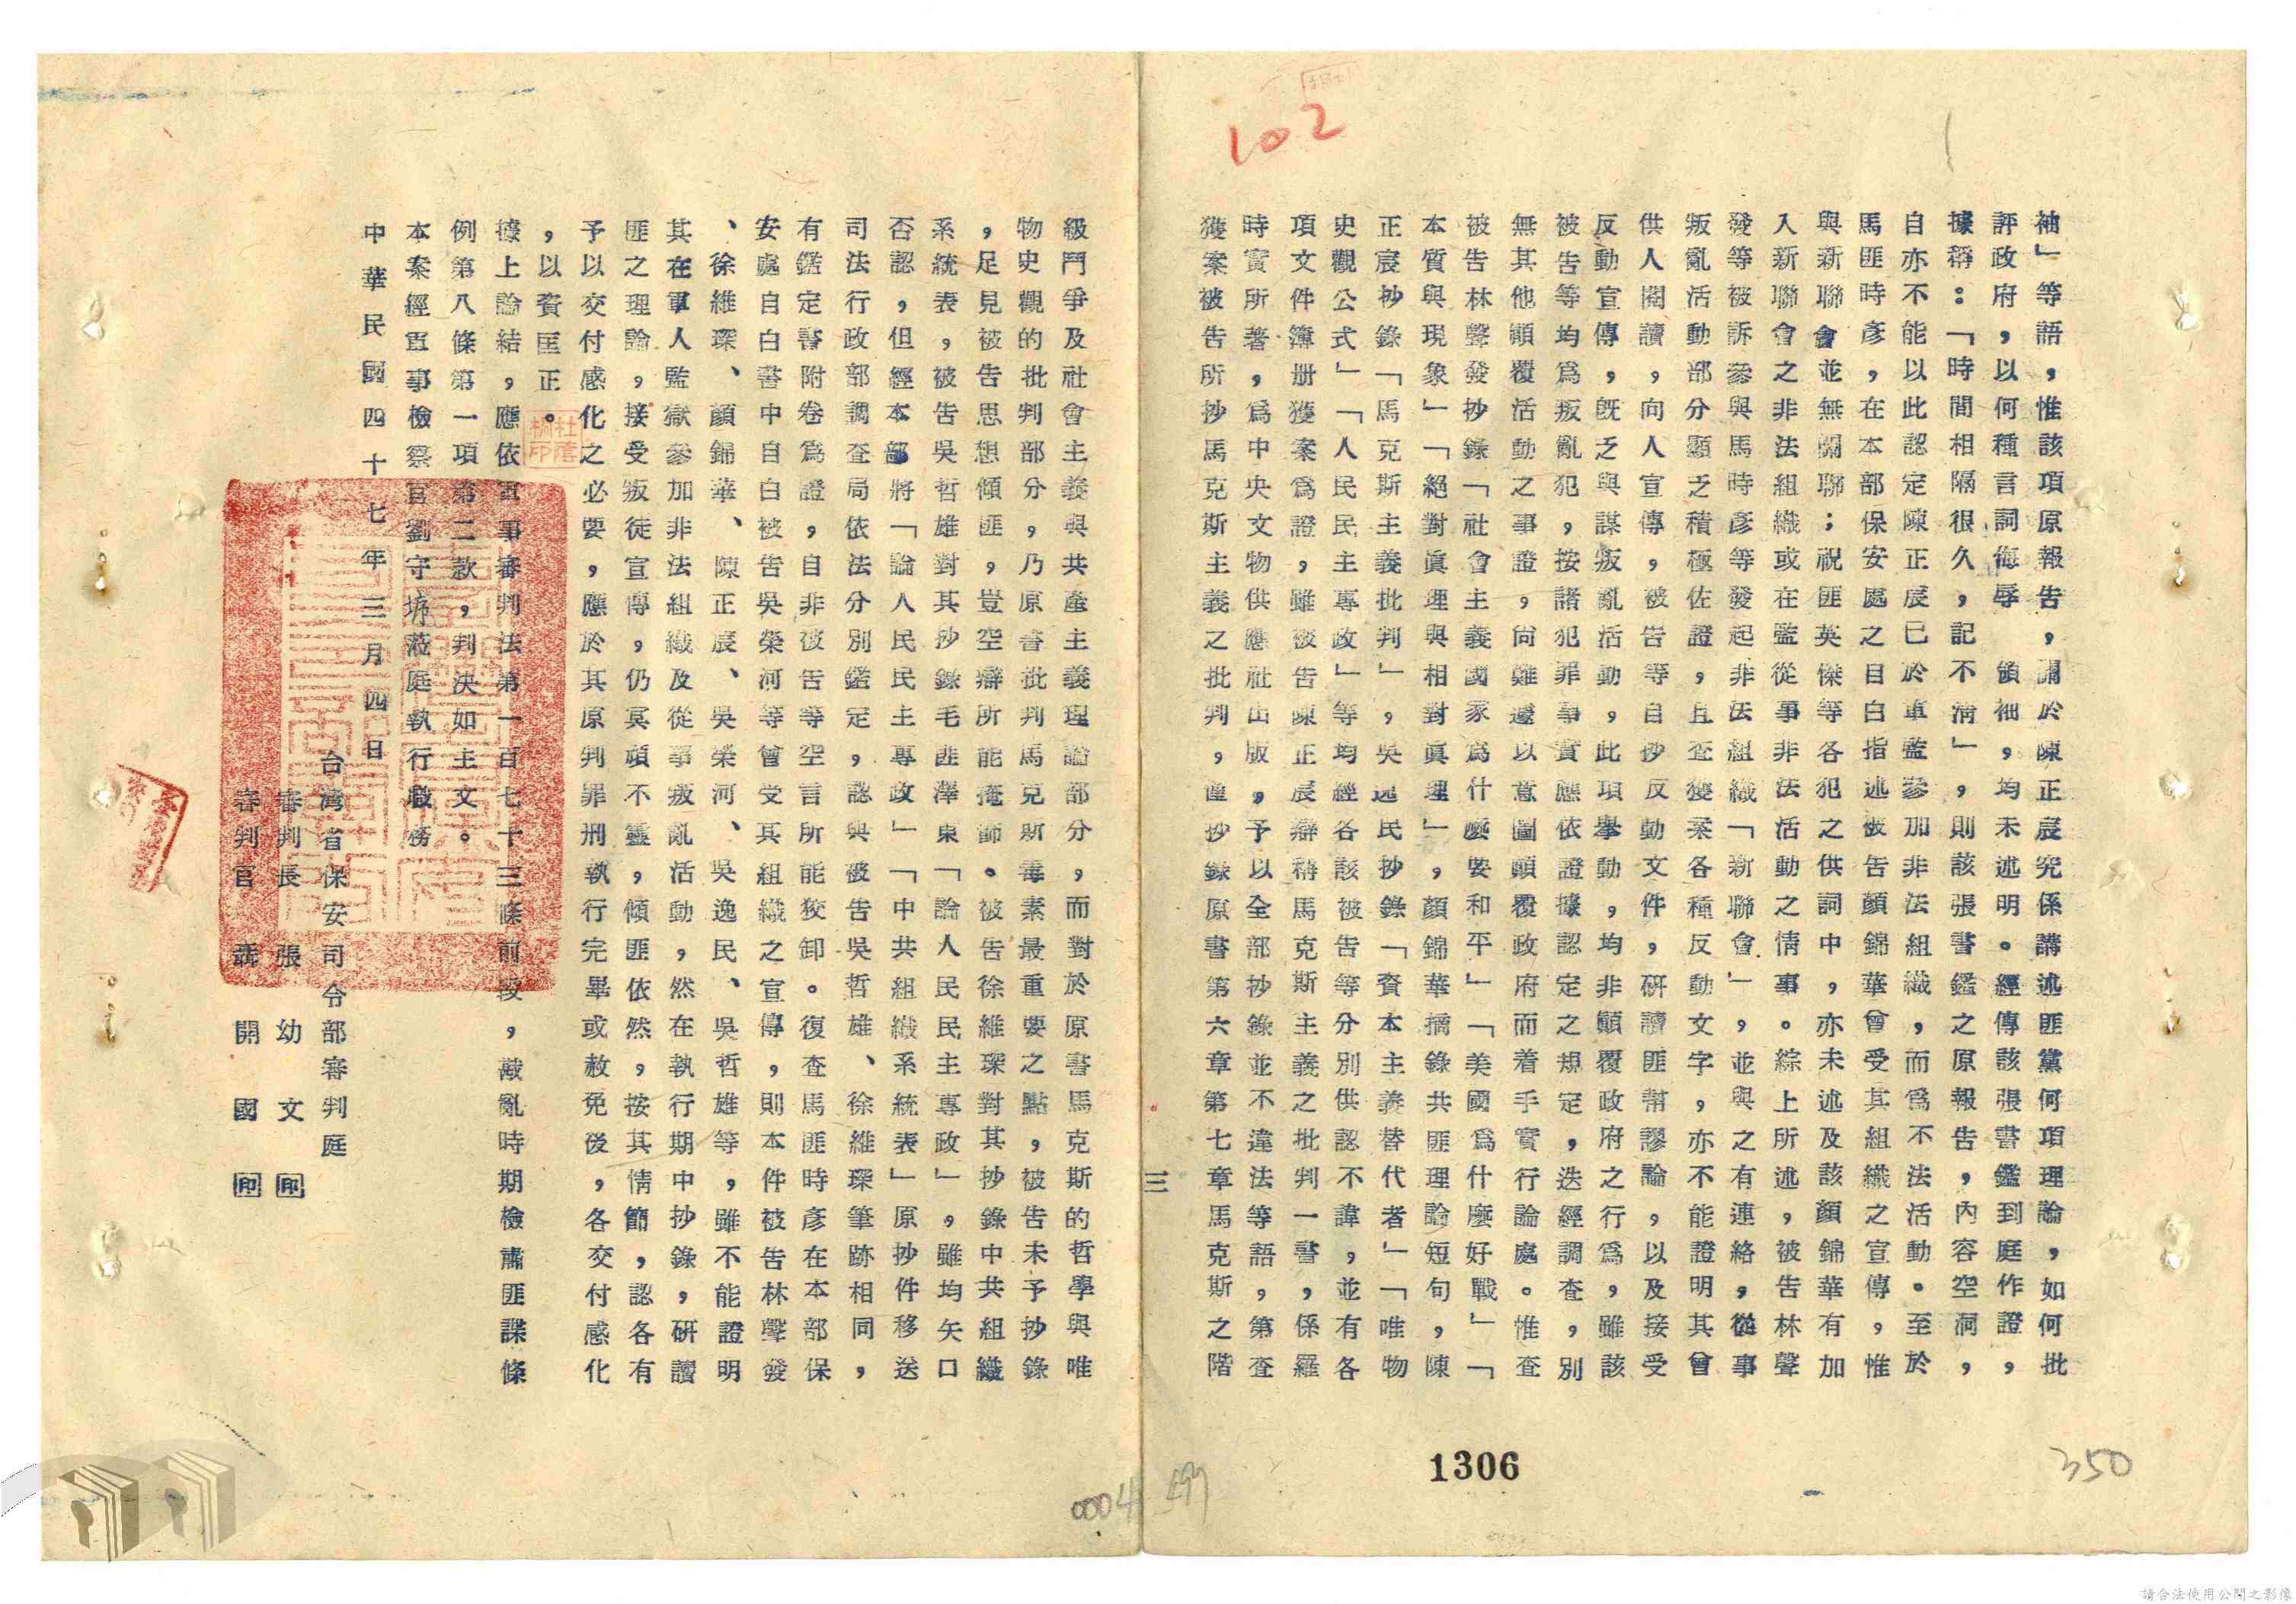 102
袖」等語，惟該項原報告，關於陳正宸究係講述匪黨何項理論，如何批
評政府，以何種言詞侮辱　領袖，均未述明。經傳該張書鑑到庭作證，
據稱：「時間相隔很久，記不清」，則該張書鑑之原報告，內容空洞，
自亦不能以此認定陳正宸已於軍監參加非法組織，而為不法活動。至於
馬匪時彥，在本部保安處之自白指述被告顏錦華曾受其組織之宣傳，惟
與新聯會並無關聯；祝匪英傑等各犯之供詞中，亦未述及該顏錦華有加
入新聯會之非法組織或在監從事非法活動之情事。綜上所述，被告林聲
發等被訴參與馬時彥等發起非法組織「新聯會」，並與之有連絡，從事
叛亂活動部分顯乏積極佐證，且查獲案各種反動文字，亦不能證明其曾
供人閱讀，向人宣傳，被告等自抄反動文件，研讀匪幫謬論，以及接受
反動宣傳，既乏與謀叛亂活動，此項舉動，均非顛覆政府之行為，雖該
被告等均為叛亂犯，按諸犯罪事實應依證據認定之規定，迭經調查，別
無其他顛覆活動之事證，尚難遽以意圖顛覆政府而着手實行論處。惟查
被告林聲發抄錄「社會主義國家為什麼要和平」「美國為什麼好戰」「
本質與現象」「絕對真理與相對真理」，顏錦華摘錄共匪理論短句，陳
正宸抄錄「馬克斯主義批判」，吳逸民抄錄「資本主義替代者」「唯物
史觀公式」「人民民主專政」等均經各該被告等分別供認不諱，並有各
項文件簿册獲案為證，雖被告陳正宸辯稱馬克斯主義之批判一書，係羅
時實所著，為中央文物供應社出版，予以全部抄錄並不違法等語，第查
獲案被告所抄馬克斯主義之批判，僅抄錄原書第六章第七章馬克斯之階
三
級鬥爭及社會主義與共產主義理論部分，而對於原書馬克斯的哲學與唯
物史觀的批判部分，乃原書批判馬克斯毒素最重要之點，被告未予抄錄
，足見被告思想傾匪，豈空辯所能掩飾。被告徐維琛對其抄錄中共組織
系統表，被告吳哲雄對其抄錄毛匪澤東「論人民民主專政」，雖均矢口
否認，但經本部將「論人民民主專政」「中共組織系統表」原抄件移送
司法行政部調查局依法分別鑑定，認與被告吳哲雄、徐維琛筆跡相同，
有鑑定書附卷為證，自非被告等空言所能狡卸。復查馬匪時彥在本部保
安處自白書中自白被告吳榮河等曾受其組織之宣傳，則本件被告林聲發
、徐維琛、顏錦華、陳正宸、吳榮河、吳逸民、吳哲雄等，雖不能證明
其在軍人監獄參加非法組織及從事叛亂活動，然在執行期中抄錄，研讀
匪之理論，接受叛徒宣傳，仍冥頑不靈，傾匪依然，按其情節，認各有
予以交付感化之必要，應於其原判罪刑執行完畢或赦免後，各交付感化
，以資匡正。
據上論結，應依軍事審判法第一百七十三條前段，戡亂時期檢肅匪諜條
例第八條第一項第二款，判決如主文。
本案經軍事檢察官劉守塘蒞庭執行職務
中華民國四十七年三月四日
台灣省保安司令部審判庭
審判長　張　幼　文　印
審判官　開　國　印
1306
350
0004
請合法使用公開之影像